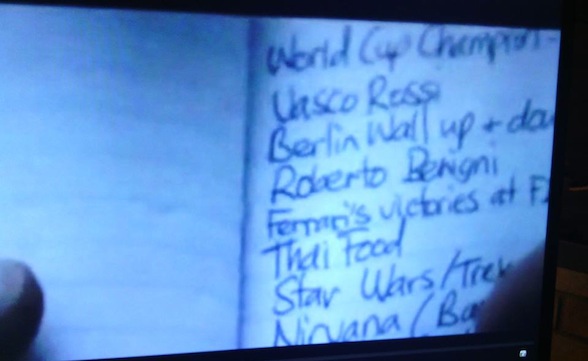 World Cup Champion-
Vasco Rossi
Berlin Wall up + dow
Roberto Benigni
Ferrari's victories at F1
Thai Food
Star Wars/Trek
Nirvana /